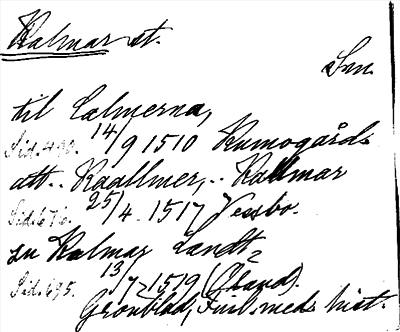 Kalmar st.
Sm.
til Calmerna,
Sid. 490. 14/9 1510 Kumogårds
att.. Kaallmer,.. Kallmar
Sid. 676. 25/4. 1517 Nessbo.
su Kalmar Landt
Sid. 695. 13/7 1519 (Öland).
Grönblad, Finl. meds hist.